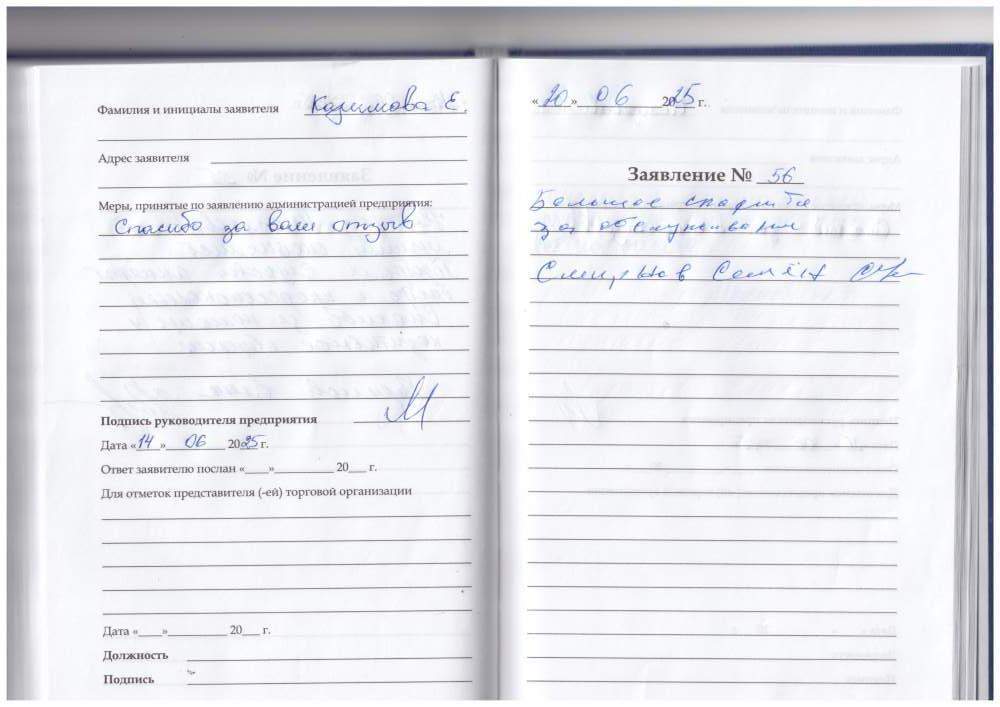 Фамилия и инициалы заявителя Казимова Е.
Адрес заявителя
Меры, принятые по заявлению администрацией предприятия:
Спасибо за ваш отзыв
Подпись руководителя предприятия
Дата «14» 06 2025 г.
Ответ заявителю послан «___»__________ 20___ г.
Для отметок представителя (-ей) торговой организации
Дата «____»__________ 20___ г.
Должность
Подпись
«20» 06 2025 г.
Заявление № 56
Большое спасибо
за обслуживание